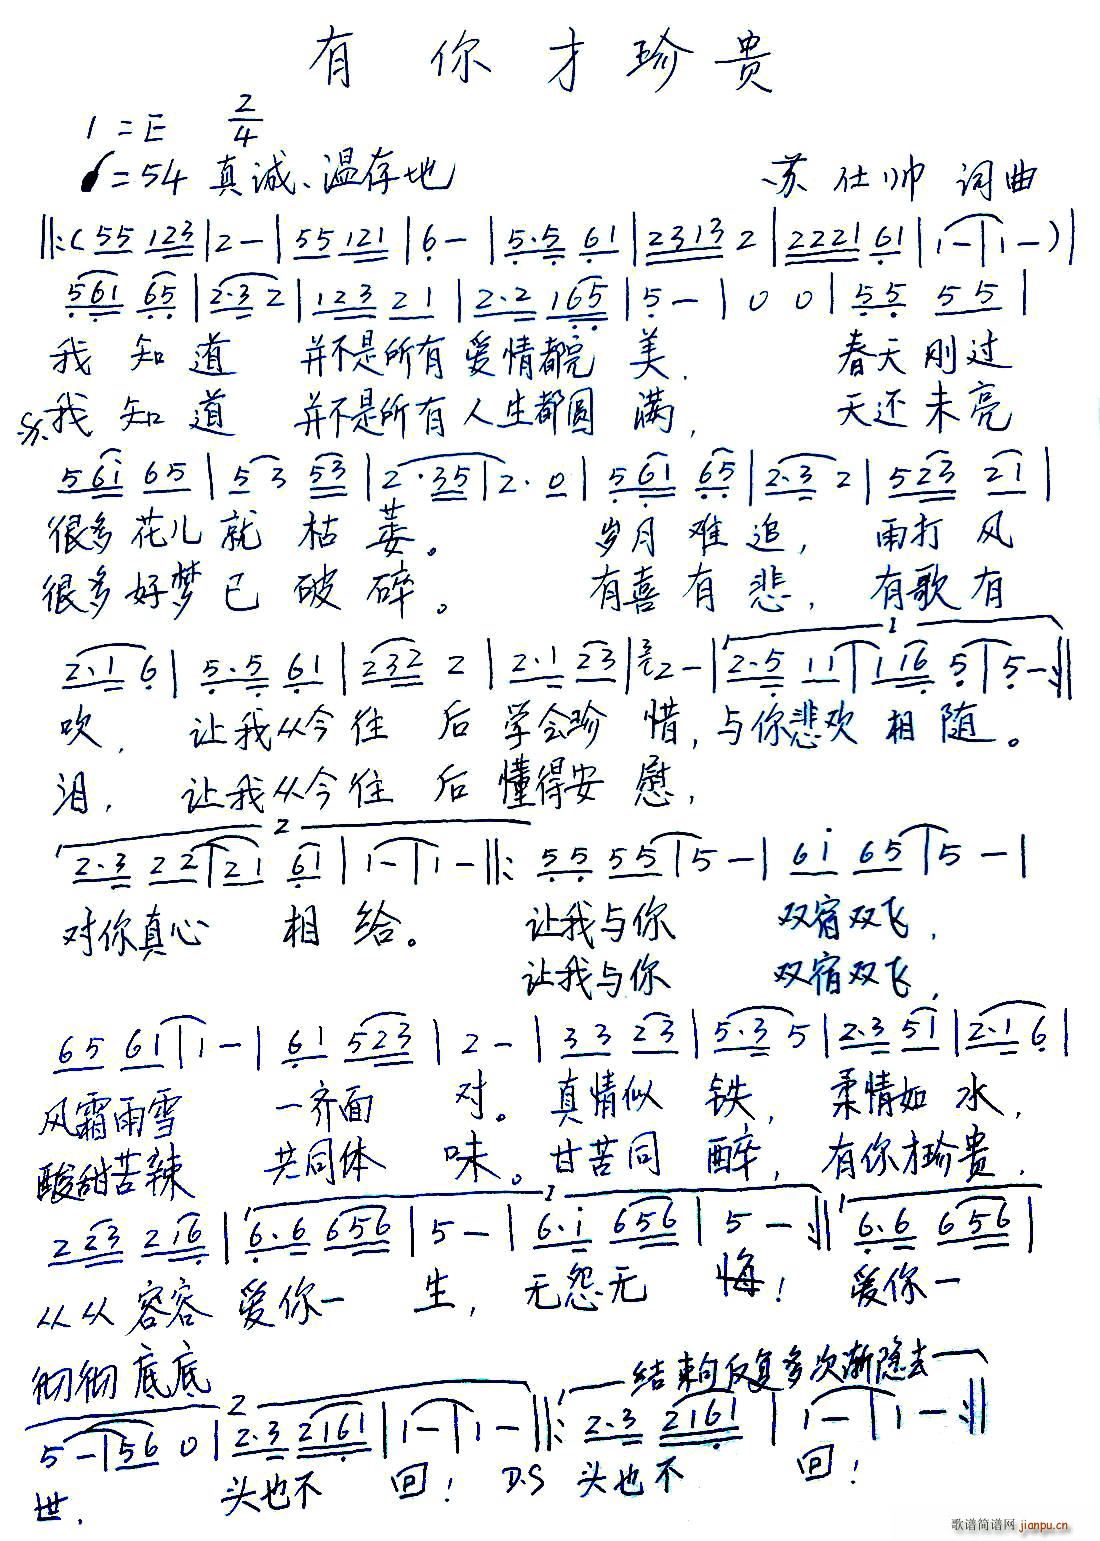 有你才珍贵
1=E 2/4
♩=54 真诚、温存地 苏仕帅 词曲
‖:( 55 123 | 2 — | 55 121 | 6 — | 5·5 61 | 2313 2 | 2221 61 | 1 — | 1 — ) |
561 65 | 2·3 2 | 123 21 | 2·2 165 | 5 — | 0 0 | 55 55 |
我知道 并不是所有爱情都完美. 春天刚过
我知道 并不是所有人生都圆满, 天还未亮
561 65 | 53 53 | 2·35 | 2·0 | 561 65 | 2·3 2 | 523 21 |
很多花儿就枯萎。 岁月难追, 雨打风
很多好梦已破碎。 有喜有悲, 有歌有
2·1 6 | 5·5 61 | 232 2 | 2·1 23 | 32 — | 1 2·5 11 | 116 5 | 5 — :‖
吹, 让我从今往后学会珍惜, 与你悲欢相随。
泪, 让我从今往后懂得安慰,
2
2·3 22 | 21 61 | 1 — | 1 — ‖: 55 55 | 5 — | 61 65 | 5 — |
对你真心相给。 让我与你 双宿双飞,
让我与你 双宿双飞,
65 61 | 1 — | 61 523 | 2 — | 33 23 | 5·3 5 | 2·3 51 | 2·1 6 |
风霜雨雪 一齐面对。真情似铁, 柔情如水,
酸甜苦辣 共同体味。甘苦同醉, 有你才珍贵.
1
223 216 | 6·6 656 | 5 — | 6·i 656 | 5 — :‖ 6·6 656 |
从从容容爱你一生, 无怨无悔! 爱你一
彻彻底底
2 结束句反复多次渐隐去
5 — | 56 0 | 2·3 2161 | 1 — | 1 — ‖: 2·3 2161 | 1 — | 1 — :‖
世. 头也不回! D.S 头也不回!
歌谱简谱网 jianpu.cn